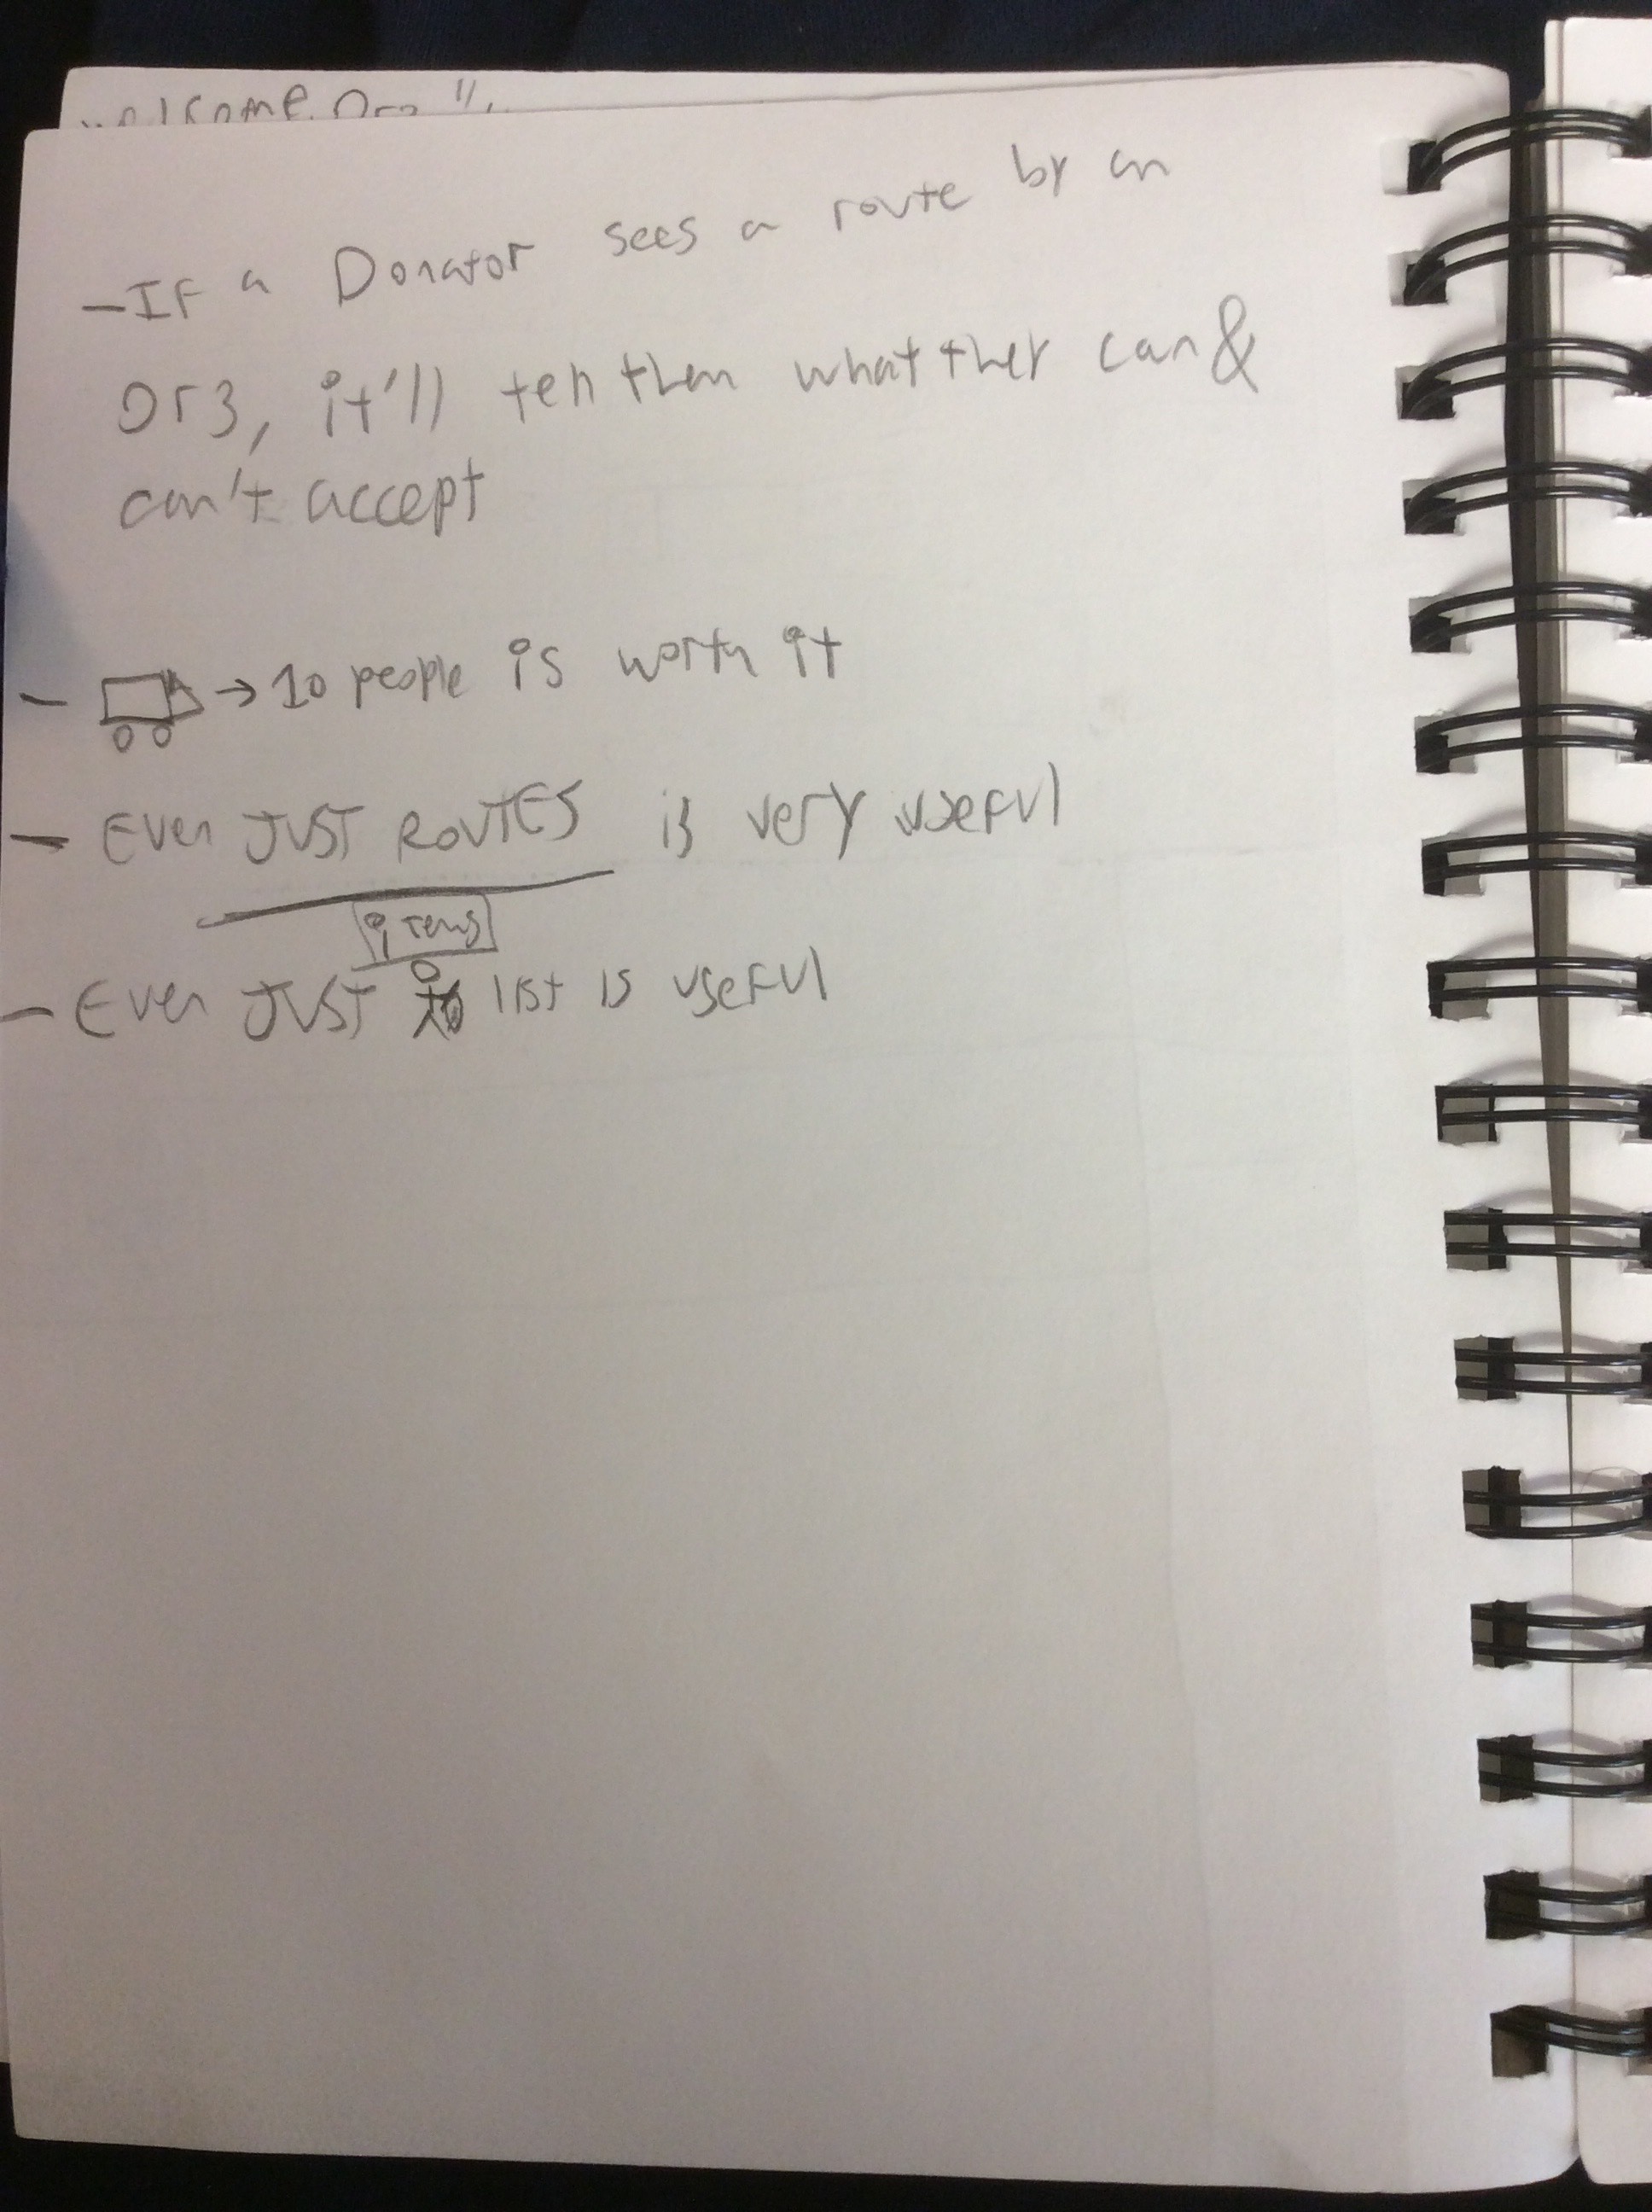 welcome. Org",
- If a Donator sees a route by an
Org, it'll tell them what they can &
can't accept
- → 10 people is worth it
- Even JUST ROUTES is very useful
items
- Even JUST list is useful